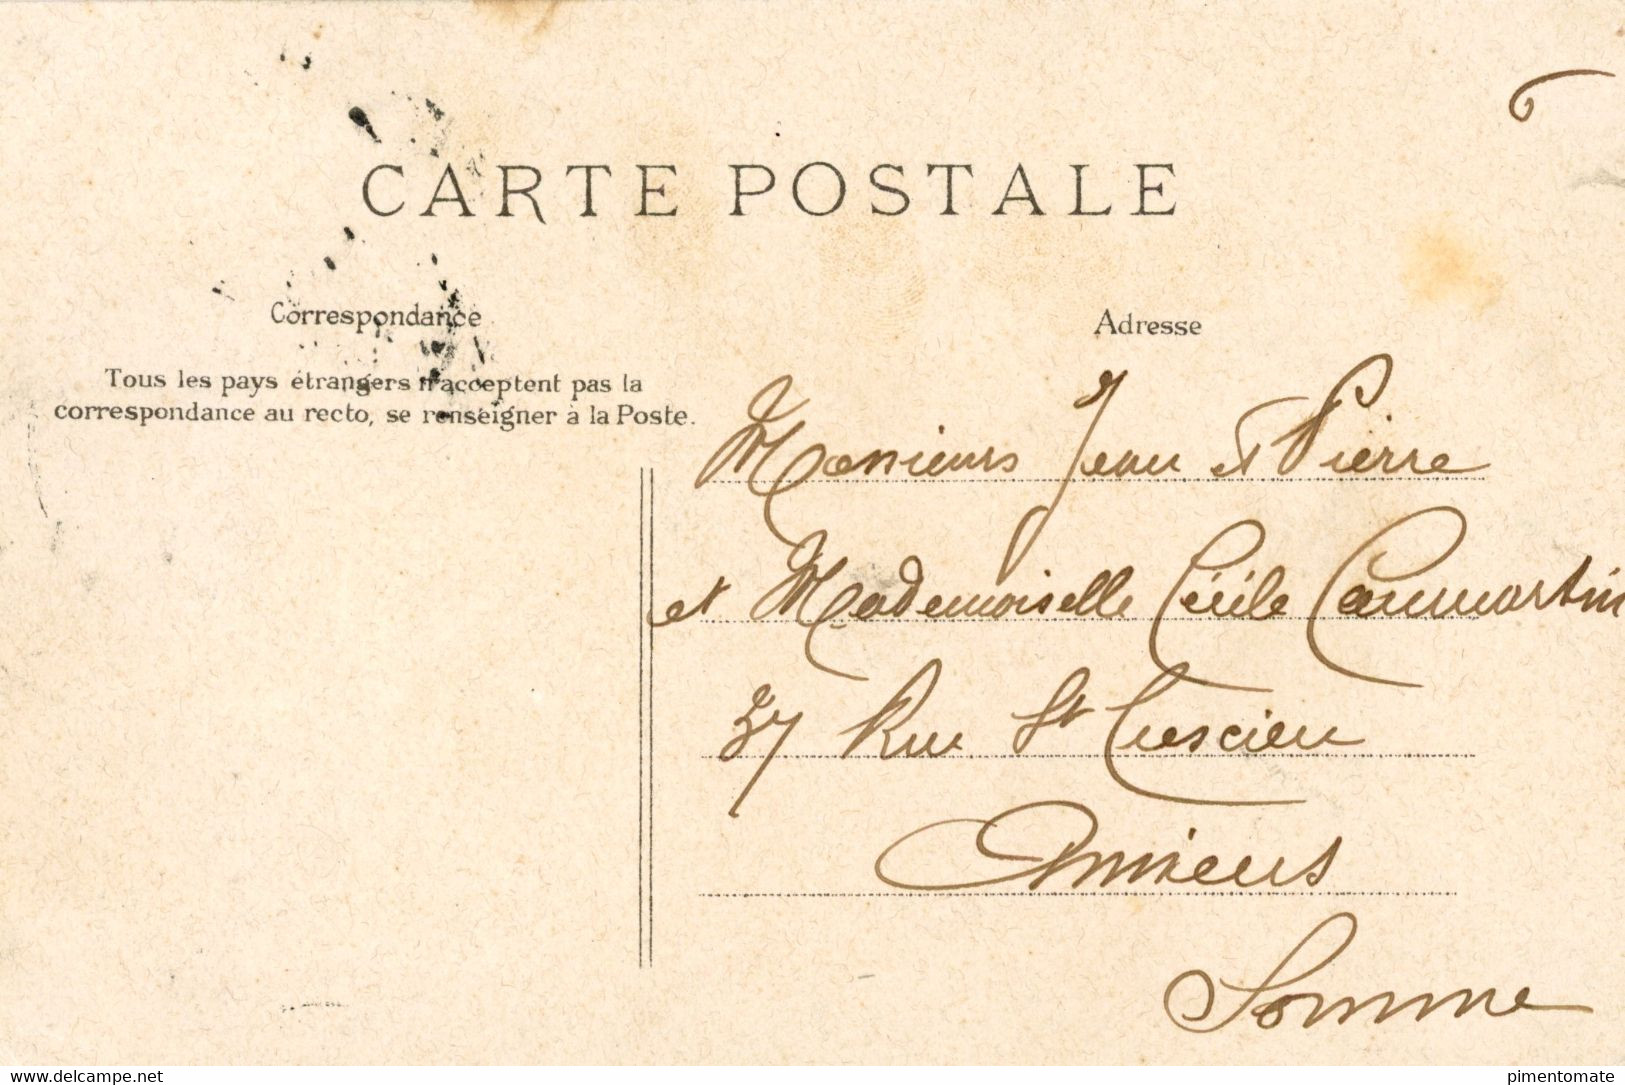 CARTE POSTALE
Correspondance
Adresse
Tous les pays étrangers n'acceptent pas la
correspondance au recto, se renseigner à la Poste.
Messieurs Jean et Pierre
et Mademoiselle Cécile Caumartin
37 Rue St Fuscien
Amiens
Somme
www.delcampe.net
pimentomate